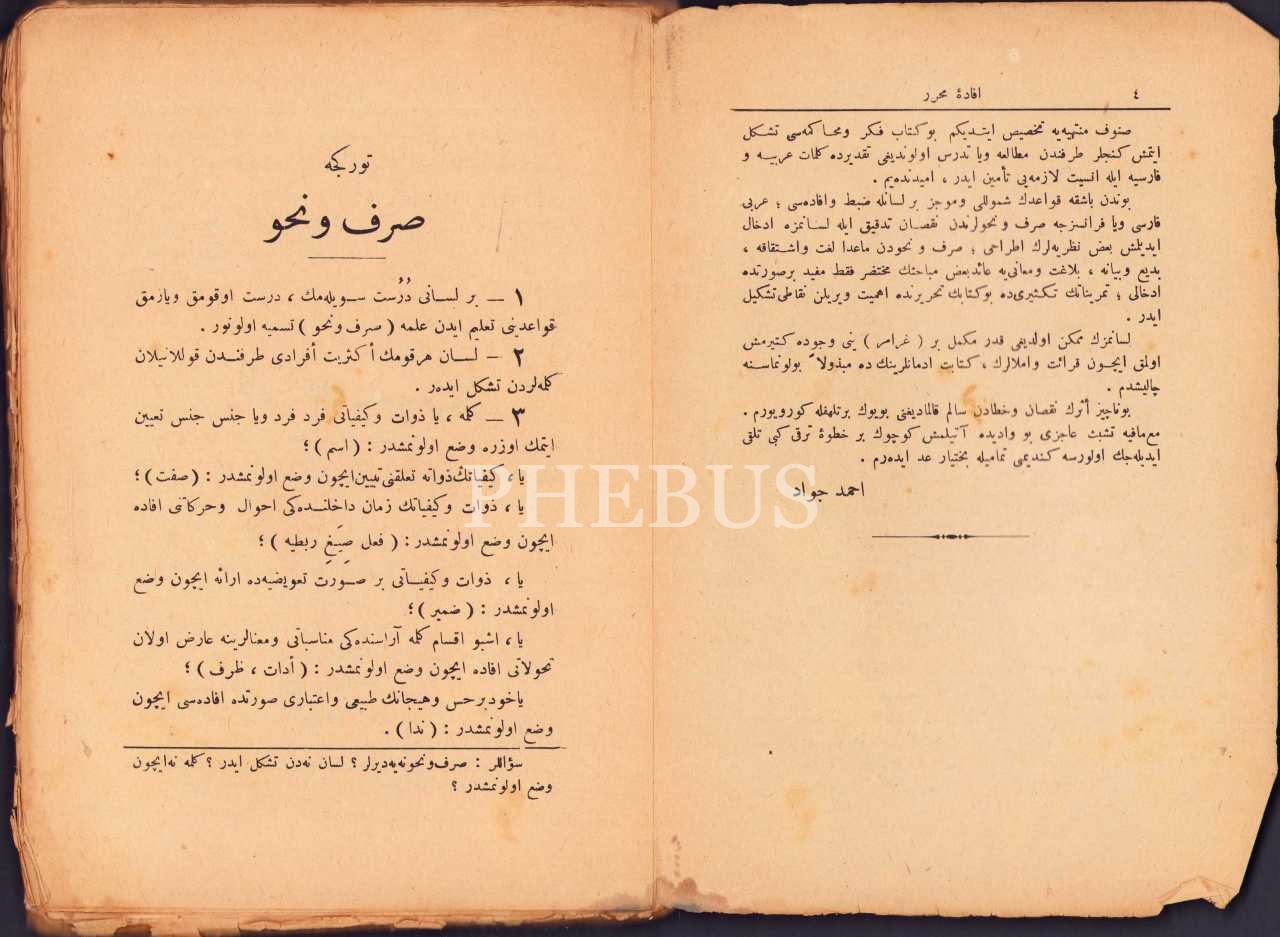 ٤ افادۀ محرر
صنوف منتهیه‌یه تخصیص ایتدیكم بو كتاب فكر ومحاكمه‌سی تشكل
ایتمش كنجلر طرفندن مطالعه ویا تدرس اولوندیغی تقدیرده كلمات عربیه و
فارسیه ایله انسیت لازمه‌یی تأمین ایدر ، امیدنده‌یم .
بوندن باشقه قواعدك شموللی وموجز بر لسانله ضبط وافاده‌سی ؛ عربی
فارسی ویا فرانسزجه صرف و نحولرندن نقصان تدقیق ایله لسانمزه ادخال
ایدیلمش بعض نظریه‌لرك اطراحی ؛ صرف و نحودن ماعدا لغت واشتقاقه ،
بدیع وبیانه ، بلاغت ومعانی‌یه عائدبعض مباحثك مختصر فقط مفید برصورتده
ادخالی ؛ تمریناتك تكثیری‌ده بوكتابك تحریرنده اهمیت ویریلن نقاطی تشكیل
ایدر .
لسانمزك ممكن اولدیغی قدر مكمل بر ( غرامر ) ینی وجوده كتیرمش
اولمق ایچون قرائت واملالرك ، كتابت ادمانلرینك ده مبذولاً بولونماسنه
چالیشدم .
بوناچیز أثرك نقصان وخطادن سالم قالمادیغنی بویوك برتلهفله كورویورم .
مع‌مافیه تشبث عاجزی بو وادیده آتیلمش كوچوك بر خطوۀ ترقی كبی تلقی
ایدیله‌جك اولورسه كندیمی تمامیله بختیار عد ایده‌رم .
احمد جواد
توركجه
صرف و نحو
١ – بر لسانی دُرُست سویله‌مك ، درست اوقومق ویازمق
قواعدینی تعلیم ایدن علمه ( صرف ونحو ) تسمیه اولونور .
٢ – لسان هرقومك أكثریت أفرادی طرفندن قوللانیلان
كلمه‌لردن تشكل ایده‌ر .
٣ – كلمه ، یا ذوات وكیفیاتی فرد فرد ویا جنس جنس تعیین
ایتمك اوزره وضع اولونمشدر : ( اسم ) ؛
یا ، كیفیاتك ذواته تعلقنی تبیین ایچون وضع اولونمشدر : ( صفت ) ؛
یا ، ذوات وكیفیاتك زمان داخلنده‌كی احوال وحركاتنی افاده
ایچون وضع اولونمشدر : ( فعل صِیَغِ ربطیه ) ؛
یا ، ذوات وكیفیاتی بر صورت تعویضیه‌ده ارائه ایچون وضع
اولونمشدر : ( ضمیر ) ؛
یا ، اشبو اقسام كلمه آراسنده‌كی مناسباتی ومعنالرینه عارض اولان
تحولاتی افاده ایچون وضع اولونمشدر : ( أدات ، ظرف ) ؛
یاخود برحس وهیجانك طبیعی واعتباری صورتده افاده‌سی ایچون
وضع اولونمشدر : ( ندا ) .
سؤاللر : صرف‌ونحونه‌یه‌دیرلر ؟ لسان نه‌دن تشكل ایدر ؟ كلمه نه‌ایچون
وضع اولونمشدر ؟
PHEBUS